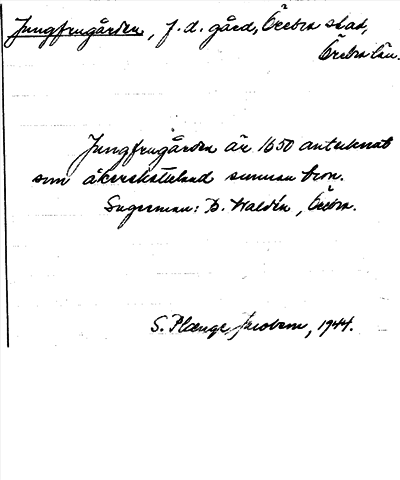 Jungfrugården, f.d. gård, Örebro stad,
Örebro län.
Jungfrugården är 1650 antecknat
som åkerskatteland sunnan bron.
Sagesman: B. Waldén, Örebro.
S. Plænge Jacobson, 1944.